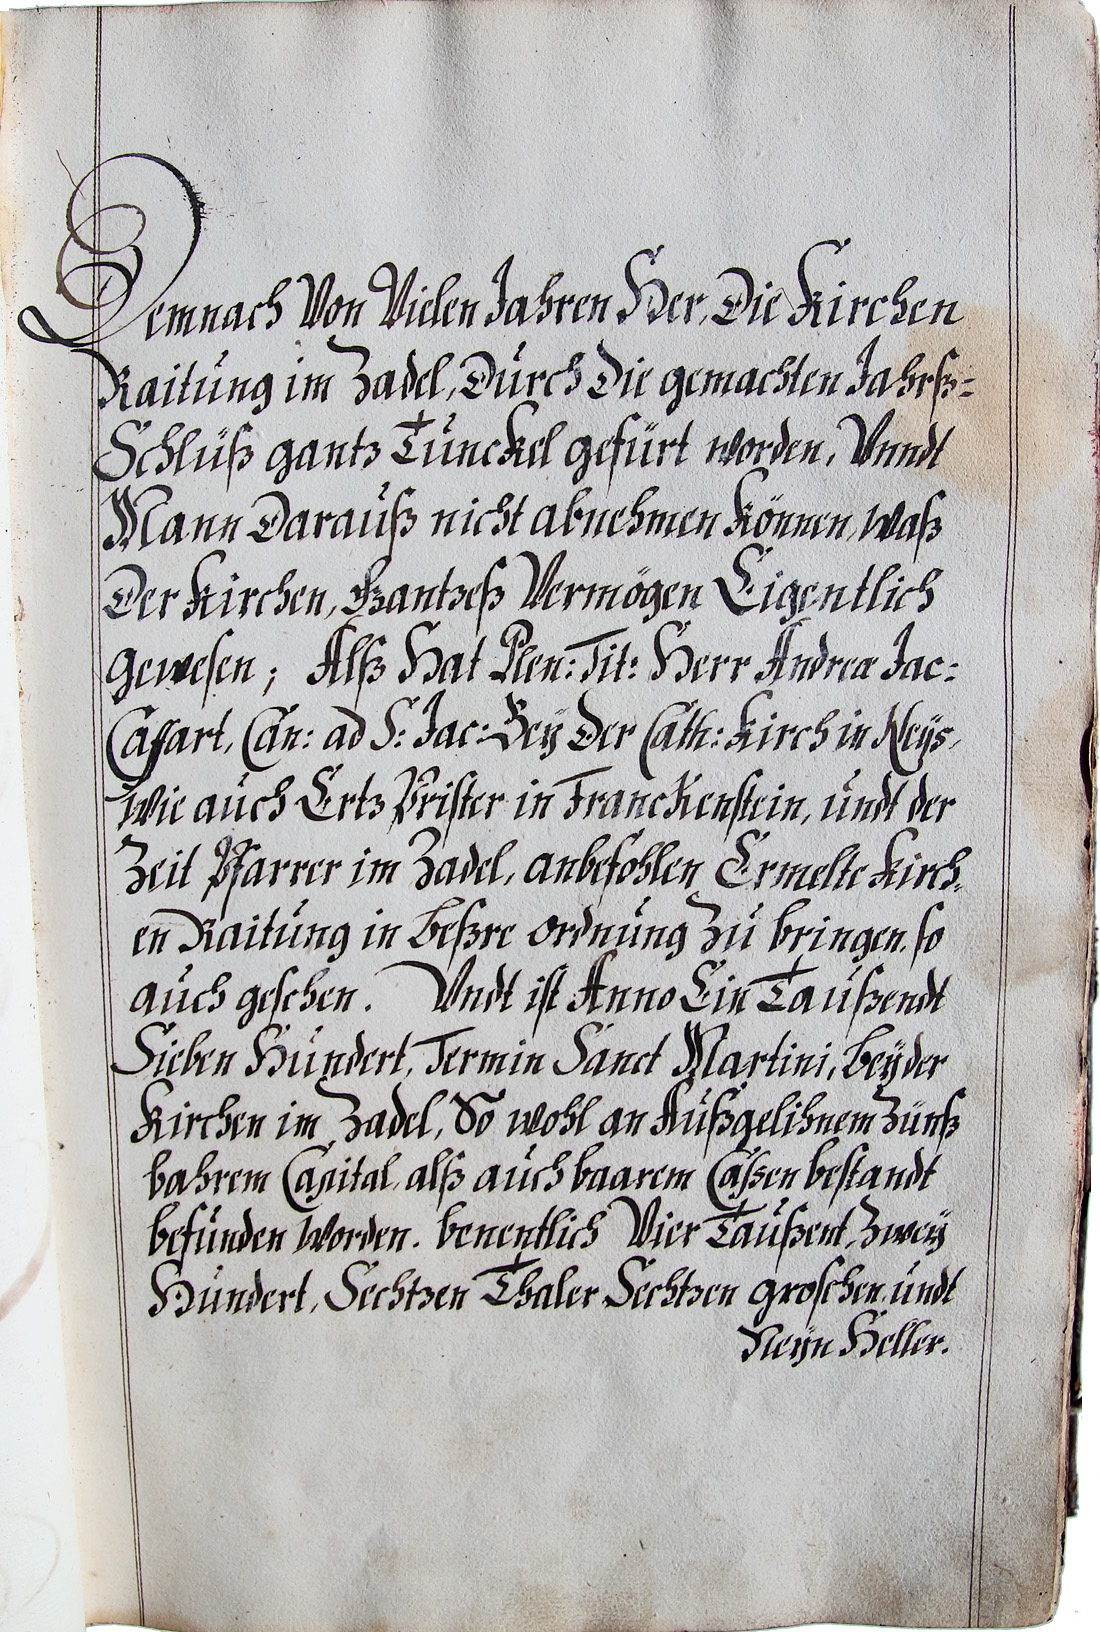 Demnach Von Vielen Jahren Her, Die Kirchen
Raitung im Zadel, Durch Die gemachten Jahrß=
Schlüß gantz Tunckel gefürt worden, Vnndt
Mann Darauß nicht abnehmen können, waß
Der Kirchen, Gantzeß Vermögen Eigentlich
gewesen; Alß Hat Plen: Tit: Herr Andrea Jac:
Can: ad S: Jac: Bey Der Cath: Kirch in Neÿs,
Wie auch Ertz Prister in Franckenstein, undt der
Zeit Pfarrer im Zadel, anbefohlen Ermelte Kirch,
en Raitung in beßre ordnung Zu bringen, so
auch geschen. Vndt ist Anno Ein Taußendt
Sieben Hundert, Termin Sanct Martini, beÿ der
Kirchen im Zadel, So wohl an Außgelihnem Zünß
bahrem Capital, alß auch baarem Caßen bestandt
befunden worden. benentlich Vier Taußent, Zweÿ
Hundert, Sechtzen Thaler Sechtzen groschen, undt
Neÿn Heller.